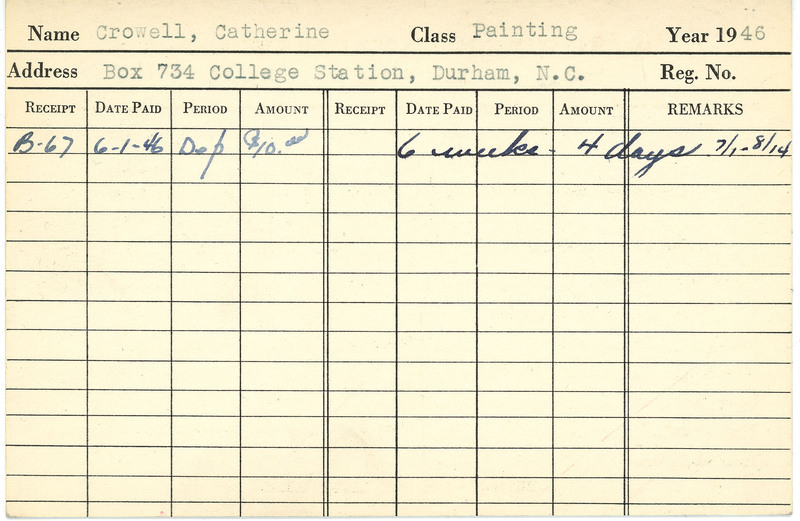 Name Crowell, Catherine Class Painting Year 1946
Address Box 734 College Station, Durham, N.C. Reg. No.
RECEIPT DATE PAID PERIOD AMOUNT RECEIPT DATE PAID PERIOD AMOUNT REMARKS
B-67 6-1-46 Dep $10.00 6 weeks - 4 days 7/1-8/14